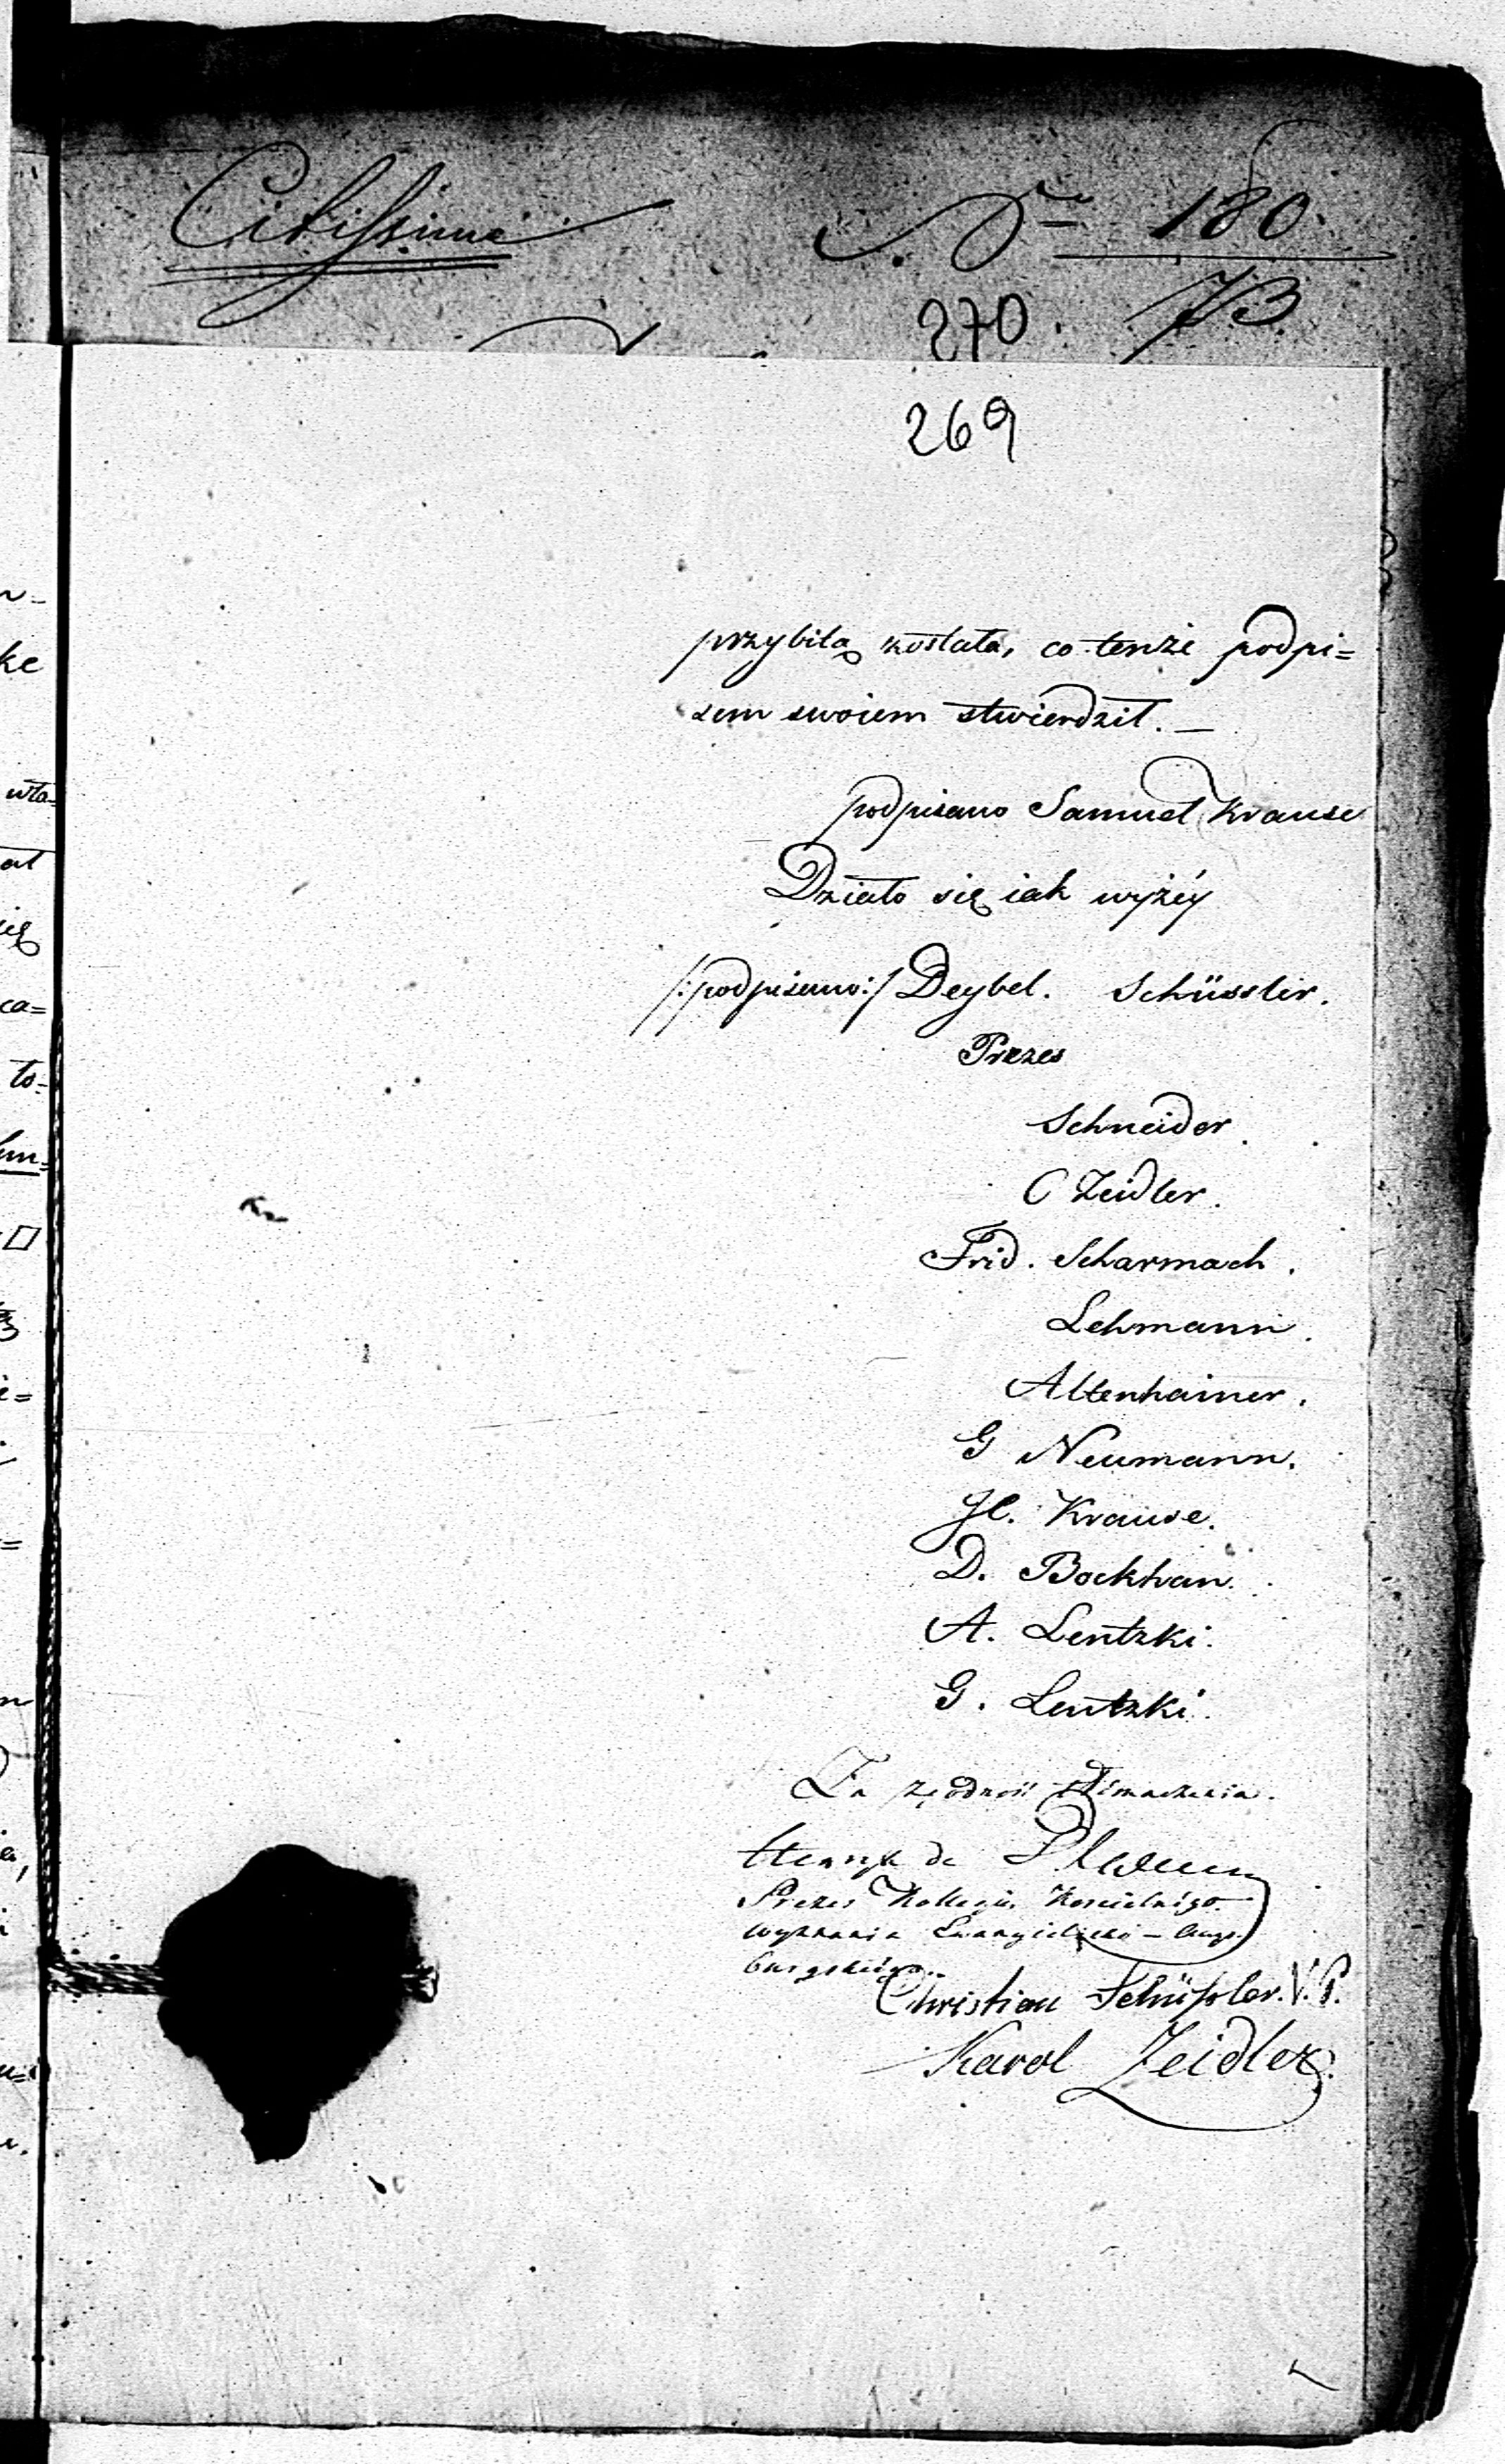 Citissime
No 180.
270. 73
269
przybitą została, co tenże podpi=
sem swoiem stwierdził. —
podpisano Samuel Krause
Działo się iak wyżéy
/:podpisano:/ Deybel. Schüssler.
Prezes
Schneider.
C Zeidler.
Frid. Scharmach.
Lehmann.
Altenhainer.
G Neumann.
Krause.
D. Bockhan.
A. Lentzki.
G. Lentzki.
Za zgodność tłómaczenia.
Henryk de
Prezes Kollegium Kościelnégo
wyznania Ewangielicko - Augs
burgskiégo.
Christian Schüßler. V. P.
Karol Zeidler.